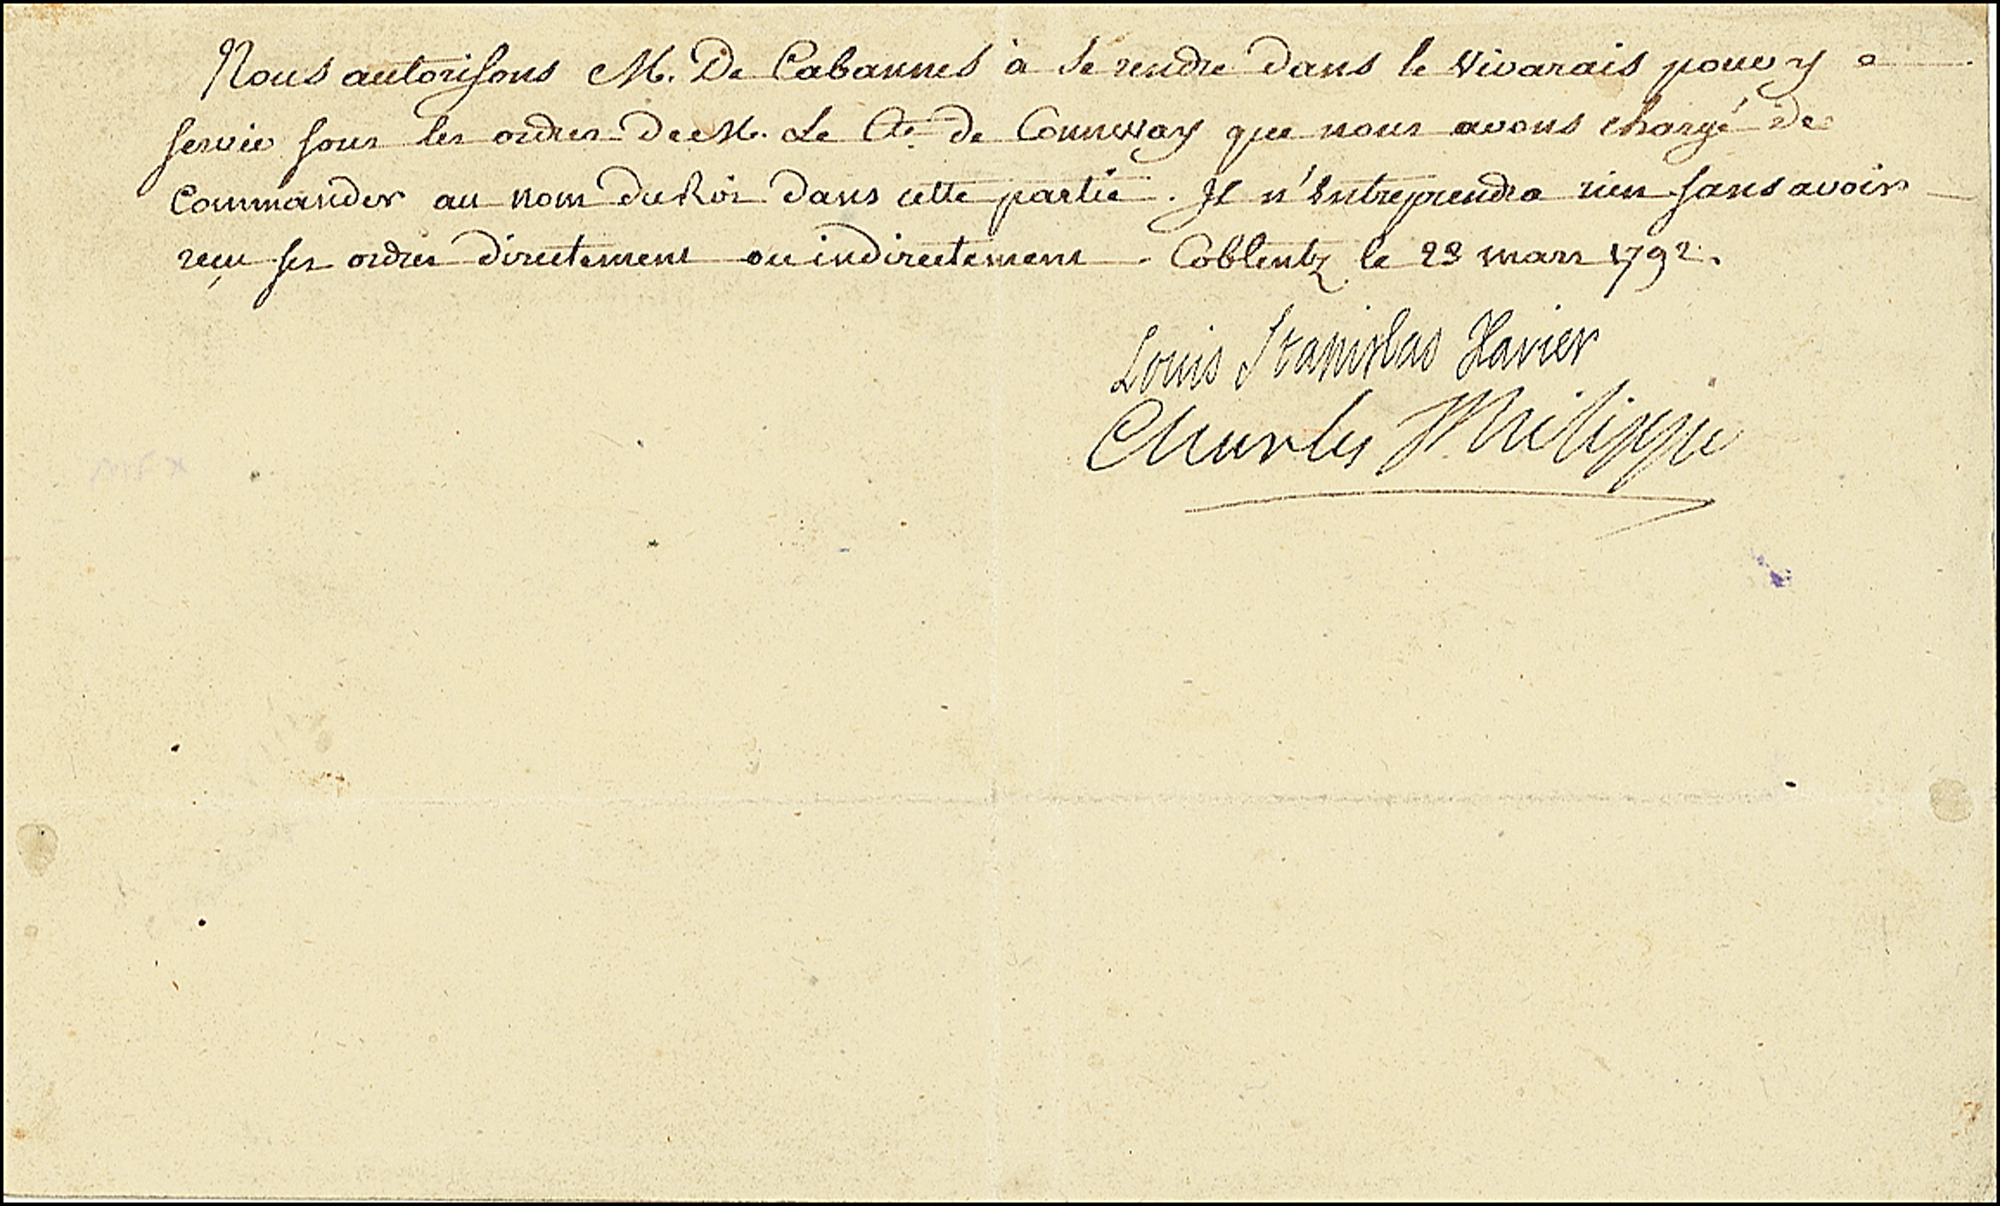 Nous autorisons M. De Cabannes à se rendre dans le Vivarais pour y
servir sous les ordres De M. Le Cte. de Connway que nous avons chargé de
Commander au nom du Roi dans cette partie. Il n'entreprendra rien sans avoir
reçu ses ordres directement ou indirectement. Coblentz le 23 mars 1792.
Louis Stanislas Xavier
Charles Philippe